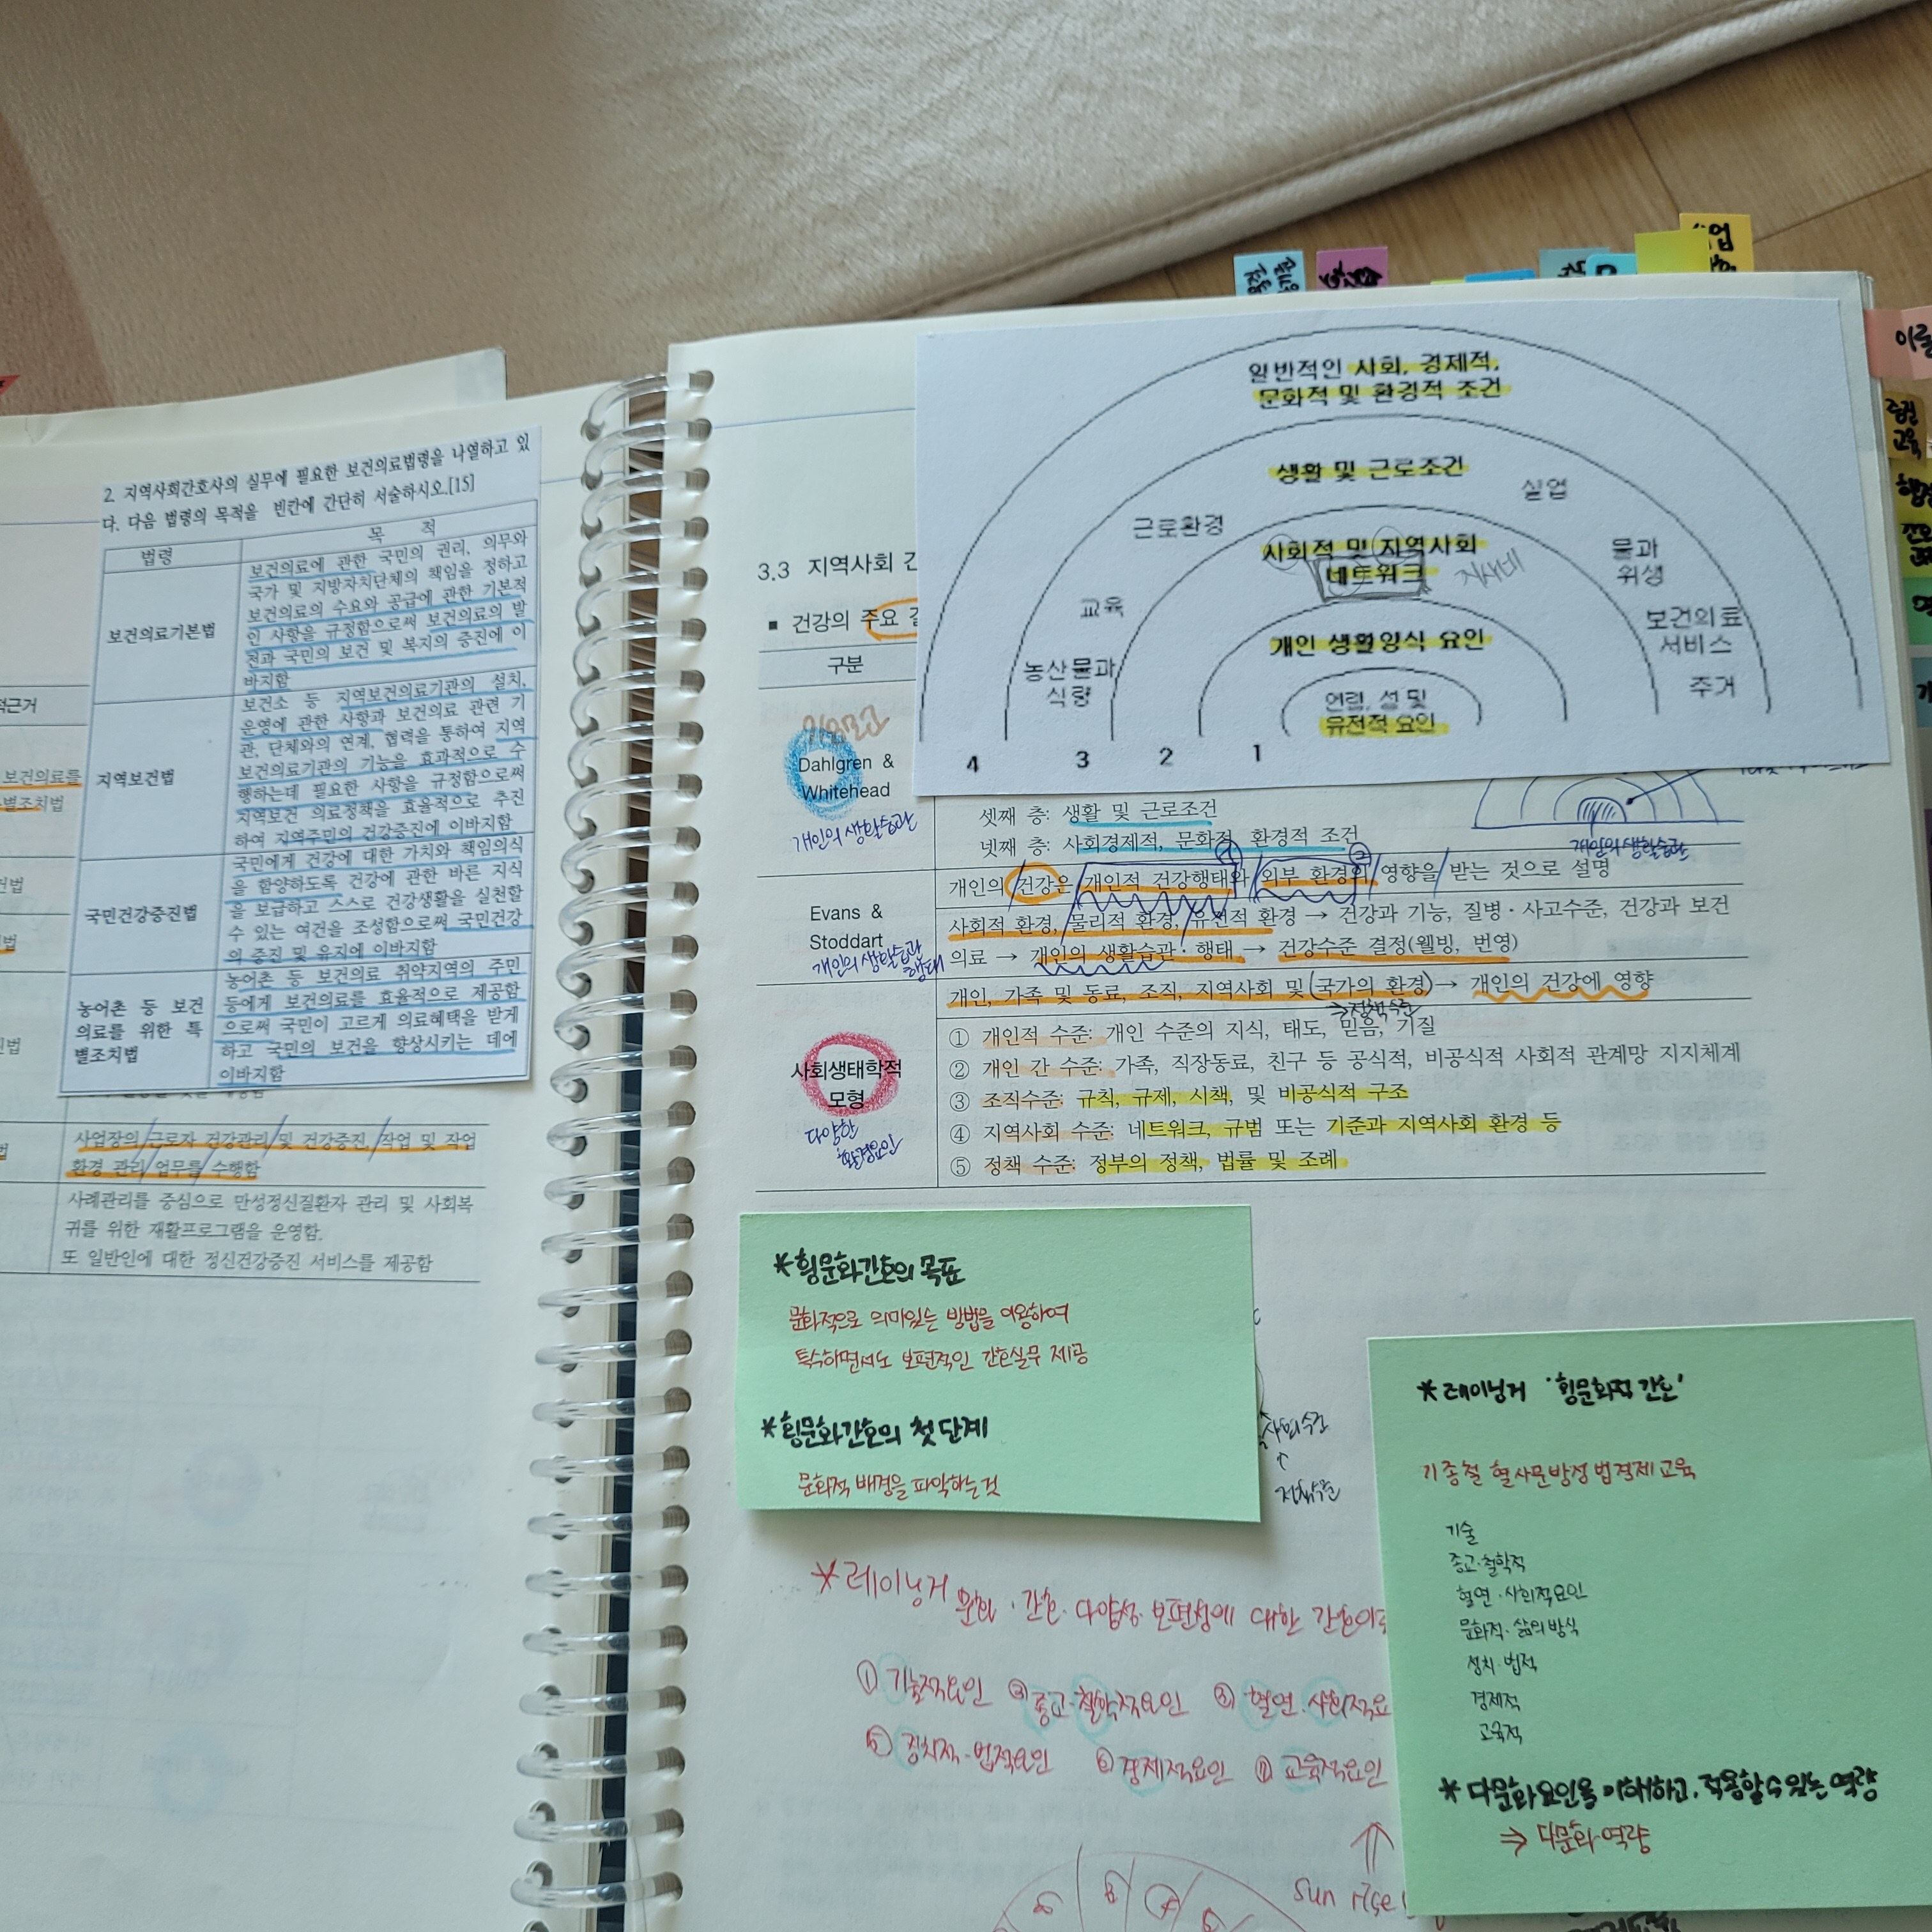 2. 지역사회간호사의 실무에 필요한 보건의료법령을 나열하고 있
다. 다음 법령의 목적을 빈칸에 간단히 서술하시오.[15]
법령
목 적
보건의료기본법
보건의료에 관한 국민의 권리, 의무와
국가 및 지방자치단체의 책임을 정하고
보건의료의 수요와 공급에 관한 기본적
인 사항을 규정함으로써 보건의료의 발
전과 국민의 보건 및 복지의 증진에 이
바지함
지역보건법
보건소 등 지역보건의료기관의 설치,
운영에 관한 사항과 보건의료 관련 기
관, 단체와의 연계, 협력을 통하여 지역
보건의료기관의 기능을 효과적으로 수
행하는데 필요한 사항을 규정함으로써
지역보건 의료정책을 효율적으로 추진
하여 지역주민의 건강증진에 이바지함
국민건강증진법
국민에게 건강에 대한 가치와 책임의식
을 함양하도록 건강에 관한 바른 지식
을 보급하고 스스로 건강생활을 실천할
수 있는 여건을 조성함으로써 국민건강
의 증진 및 유지에 이바지함
농어촌 등 보건
의료를 위한 특
별조치법
농어촌 등 보건의료 취약지역의 주민
등에게 보건의료를 효율적으로 제공함
으로써 국민이 고르게 의료혜택을 받게
하고 국민의 보건을 향상시키는 데에
이바지함
적근거
보건의료를
별조치법
사업장의 근로자 건강관리 및 건강증진, 작업 및 작업
환경 관리 업무를 수행함
사례관리를 중심으로 만성정신질환자 관리 및 사회복
귀를 위한 재활프로그램을 운영함.
또 일반인에 대한 정신건강증진 서비스를 제공함
일반적인 사회, 경제적,
문화적 및 환경적 조건
생활 및 근로조건
실업
근로환경
사회적 및 지역사회
네트워크
지사네
물과
위생
교육
보건의료
서비스
개인 생활양식 요인
농산물과
식량
주거
연령, 성 및
유전적 요인
4 3 2 1
3.3 지역사회 간
■ 건강의 주요 결
구분
Dahlgren &
Whitehead
개인의 생활습관
셋째 층: 생활 및 근로조건
넷째 층: 사회경제적, 문화적 환경적 조건
개인의 생활습관
Evans &
Stoddart
개인의 생활습관
행태
개인의 건강은 개인적 건강행태와 외부 환경의 영향을 받는 것으로 설명
사회적 환경, 물리적 환경, 유전적 환경 → 건강과 기능, 질병·사고수준, 건강과 보건
의료 → 개인의 생활습관·행태 → 건강수준 결정(웰빙, 번영)
사회생태학적
모형
다양한
환경요인
개인, 가족 및 동료, 조직, 지역사회 및 (국가의 환경) → 개인의 건강에 영향
⇒정책수준
① 개인적 수준: 개인 수준의 지식, 태도, 믿음, 기질
② 개인 간 수준: 가족, 직장동료, 친구 등 공식적, 비공식적 사회적 관계망 지지체계
③ 조직수준: 규칙, 규제, 시책, 및 비공식적 구조
④ 지역사회 수준: 네트워크, 규범 또는 기준과 지역사회 환경 등
⑤ 정책 수준: 정부의 정책, 법률 및 조례
*횡문화간호의 목표
문화적으로 의미있는 방법을 이용하여
특수하면서도 보편적인 간호실무 제공
*횡문화간호의 첫 단계
문화적 배경을 파악하는 것
↑
정책수준
* 레이닝거 '횡문화적 간호'
기종철 혈사문방정법경제교육
기술
종교·철학적
혈연·사회적요인
문화적·삶의 방식
정치·법적
경제적
교육적
* 다문화요인을 이해하고, 적용할 수 있는 역량
⇒ 다문화 역량
*레이닝거 문화·간호·다양성·보편성에 대한 간호이론
① 기술적요인 ② 종교·철학적요인 ③ 혈연·사회적요
⑤ 정치적·법적요인 ⑥ 경제적요인 ⑦ 교육적요인
sun rise